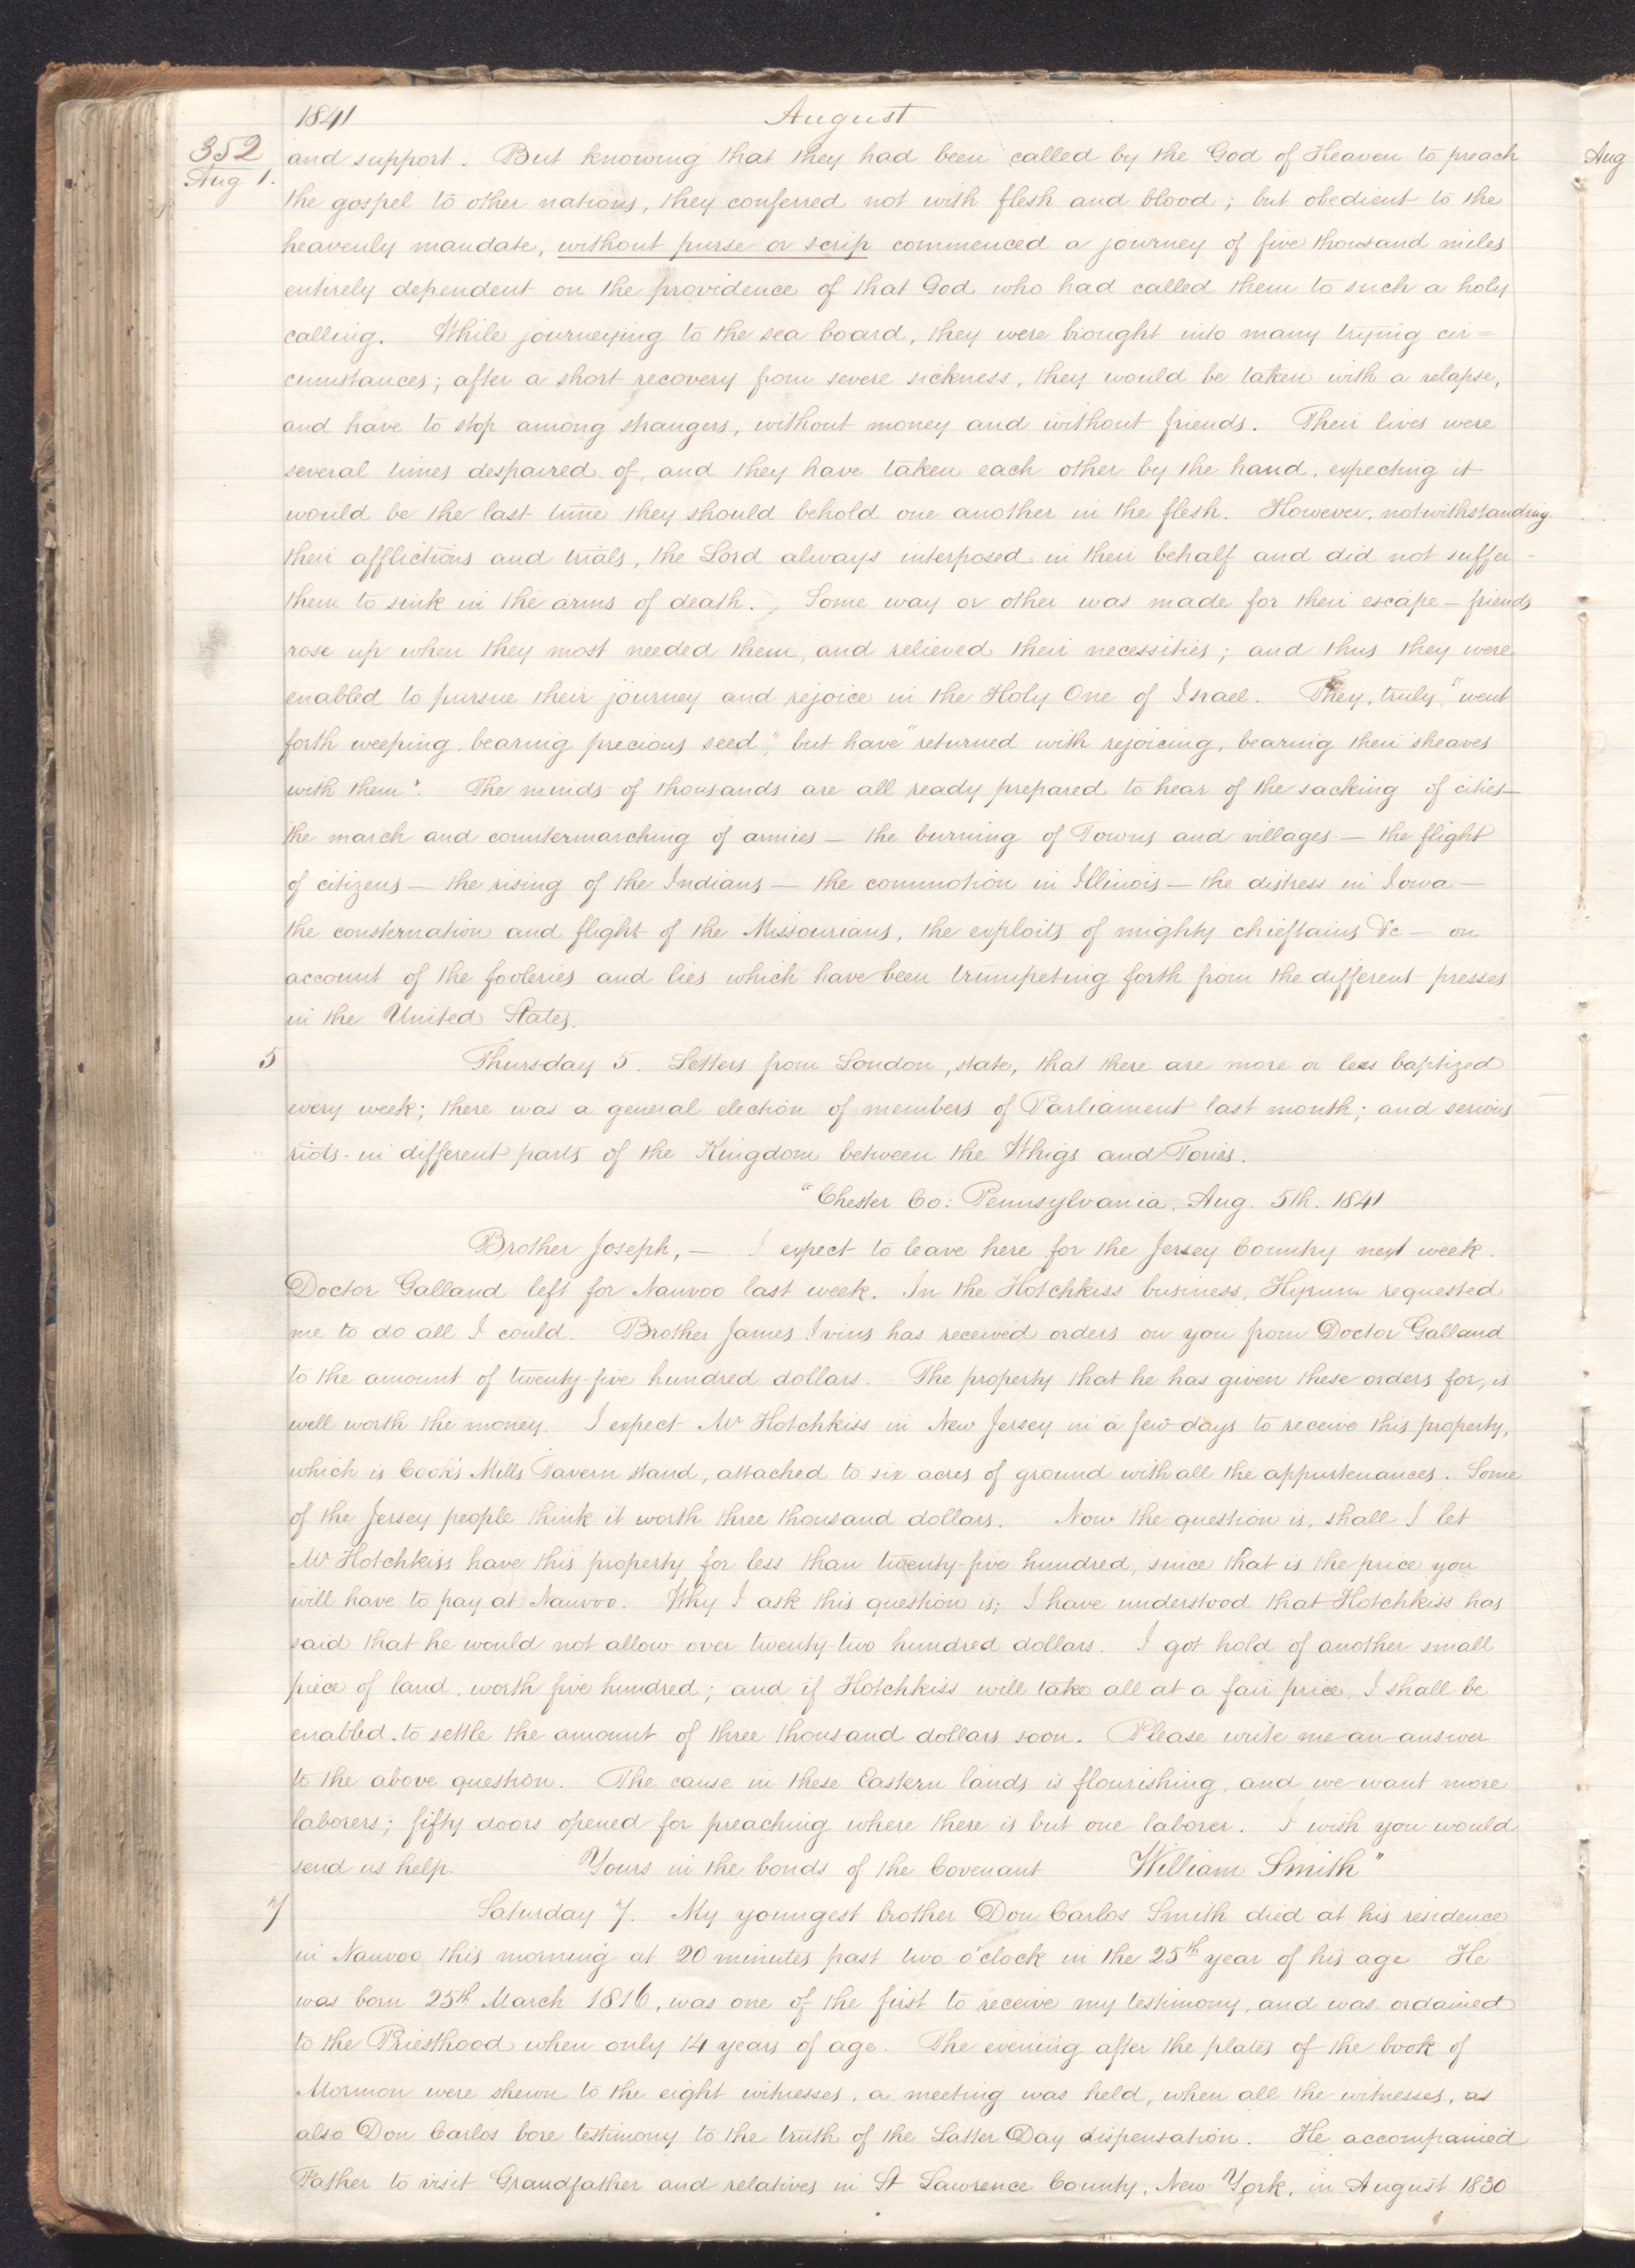 1841 August
352
Aug 1.
Aug
and support. But knowing that they had been called by the God of Heaven to preach
the gospel to other nations, they conferred not with flesh and blood; but obedient to the
heavenly mandate, without purse or scrip commenced a journey of five thousand miles
entirely dependent on the providence of that God who had called them to such a holy
calling. While journeying to the sea board, they were brought into many trying cir=
cumstances; after a short recovery from severe sickness, they would be taken with a relapse,
and have to stop among strangers, without money and without friends. Their lives were
several times despaired of, and they have taken each other by the hand, expecting it
would be the last time they should behold one another in the flesh. However, notwithstanding
their afflictions and trials, the Lord always interposed in their behalf and did not suffer
them to sink in the arms of death. Some way or other was made for their escape — friends
rose up when they most needed them, and relieved their necessities; and thus they were
enabled to pursue their journey and rejoice in the Holy One of Israel. They, truly, "went
forth weeping, bearing precious seed," but have "returned with rejoicing, bearing their sheaves
with them". The minds of thousands are all ready prepared to hear of the sacking of cities—
the march and countermarching of armies — the burning of Towns and villages — the flight
of citizens — the rising of the Indians — the commotion in Illinois — the distress in Iowa —
the consternation and flight of the Missourians, the exploits of mighty chieftains &c — on
account of the fooleries and lies which have been trumpeting forth from the different presses
in the United States.
5 Thursday 5. Letters from London, state, that there are more or less baptized
every week; there was a general election of members of Parliament last month; and serious
riots in different parts of the Kingdom between the Whigs and Tories.
"Chester Co: Pennsylvania, Aug. 5th. 1841
Brother Joseph, — I expect to leave here for the Jersey Country next week.
Doctor Galland left for Nauvoo last week. In the Hotchkiss business, Hyrum requested
me to do all I could. Brother James Ivins has received orders on you from Doctor Galland
to the amount of twenty-five hundred dollars. The property that he has given these orders for, is
well worth the money. I expect Mr Hotchkiss in New Jersey in a few days to receive this property,
which is Cook's Mills Tavern stand, attached to six acres of ground with all the appurtenances. Some
of the Jersey people think it worth three thousand dollars. Now the question is, shall I let
Mr Hotchkiss have this property for less than twenty-five hundred, since that is the price you
will have to pay at Nauvoo. Why I ask this question is; I have understood that Hotchkiss has
said that he would not allow over twenty-two hundred dollars. I got hold of another small
piece of land, worth five hundred; and if Hotchkiss will take all at a fair price, I shall be
enabled to settle the amount of three thousand dollars soon. Please write me an answer
to the above question. The cause in these Eastern lands is flourishing, and we want more
laborers; fifty doors opened for preaching where there is but one laborer. I wish you would
send us help. Yours in the bonds of the Covenant William Smith"
7 Saturday 7. My youngest brother Don Carlos Smith died at his residence
in Nauvoo this morning at 20 minutes past two o'clock in the 25th year of his age He
was born 25th March 1816, was one of the first to receive my testimony, and was ordained
to the Priesthood when only 14 years of age. The evening after the plates of the book of
Mormon were shewn to the eight witnesses, a meeting was held, when all the witnesses, as
also Don Carlos bore testimony to the truth of the Latter Day dispensation. He accompanied
Father to visit Grandfather and relatives in St Lawrence County, New York, in August 1830